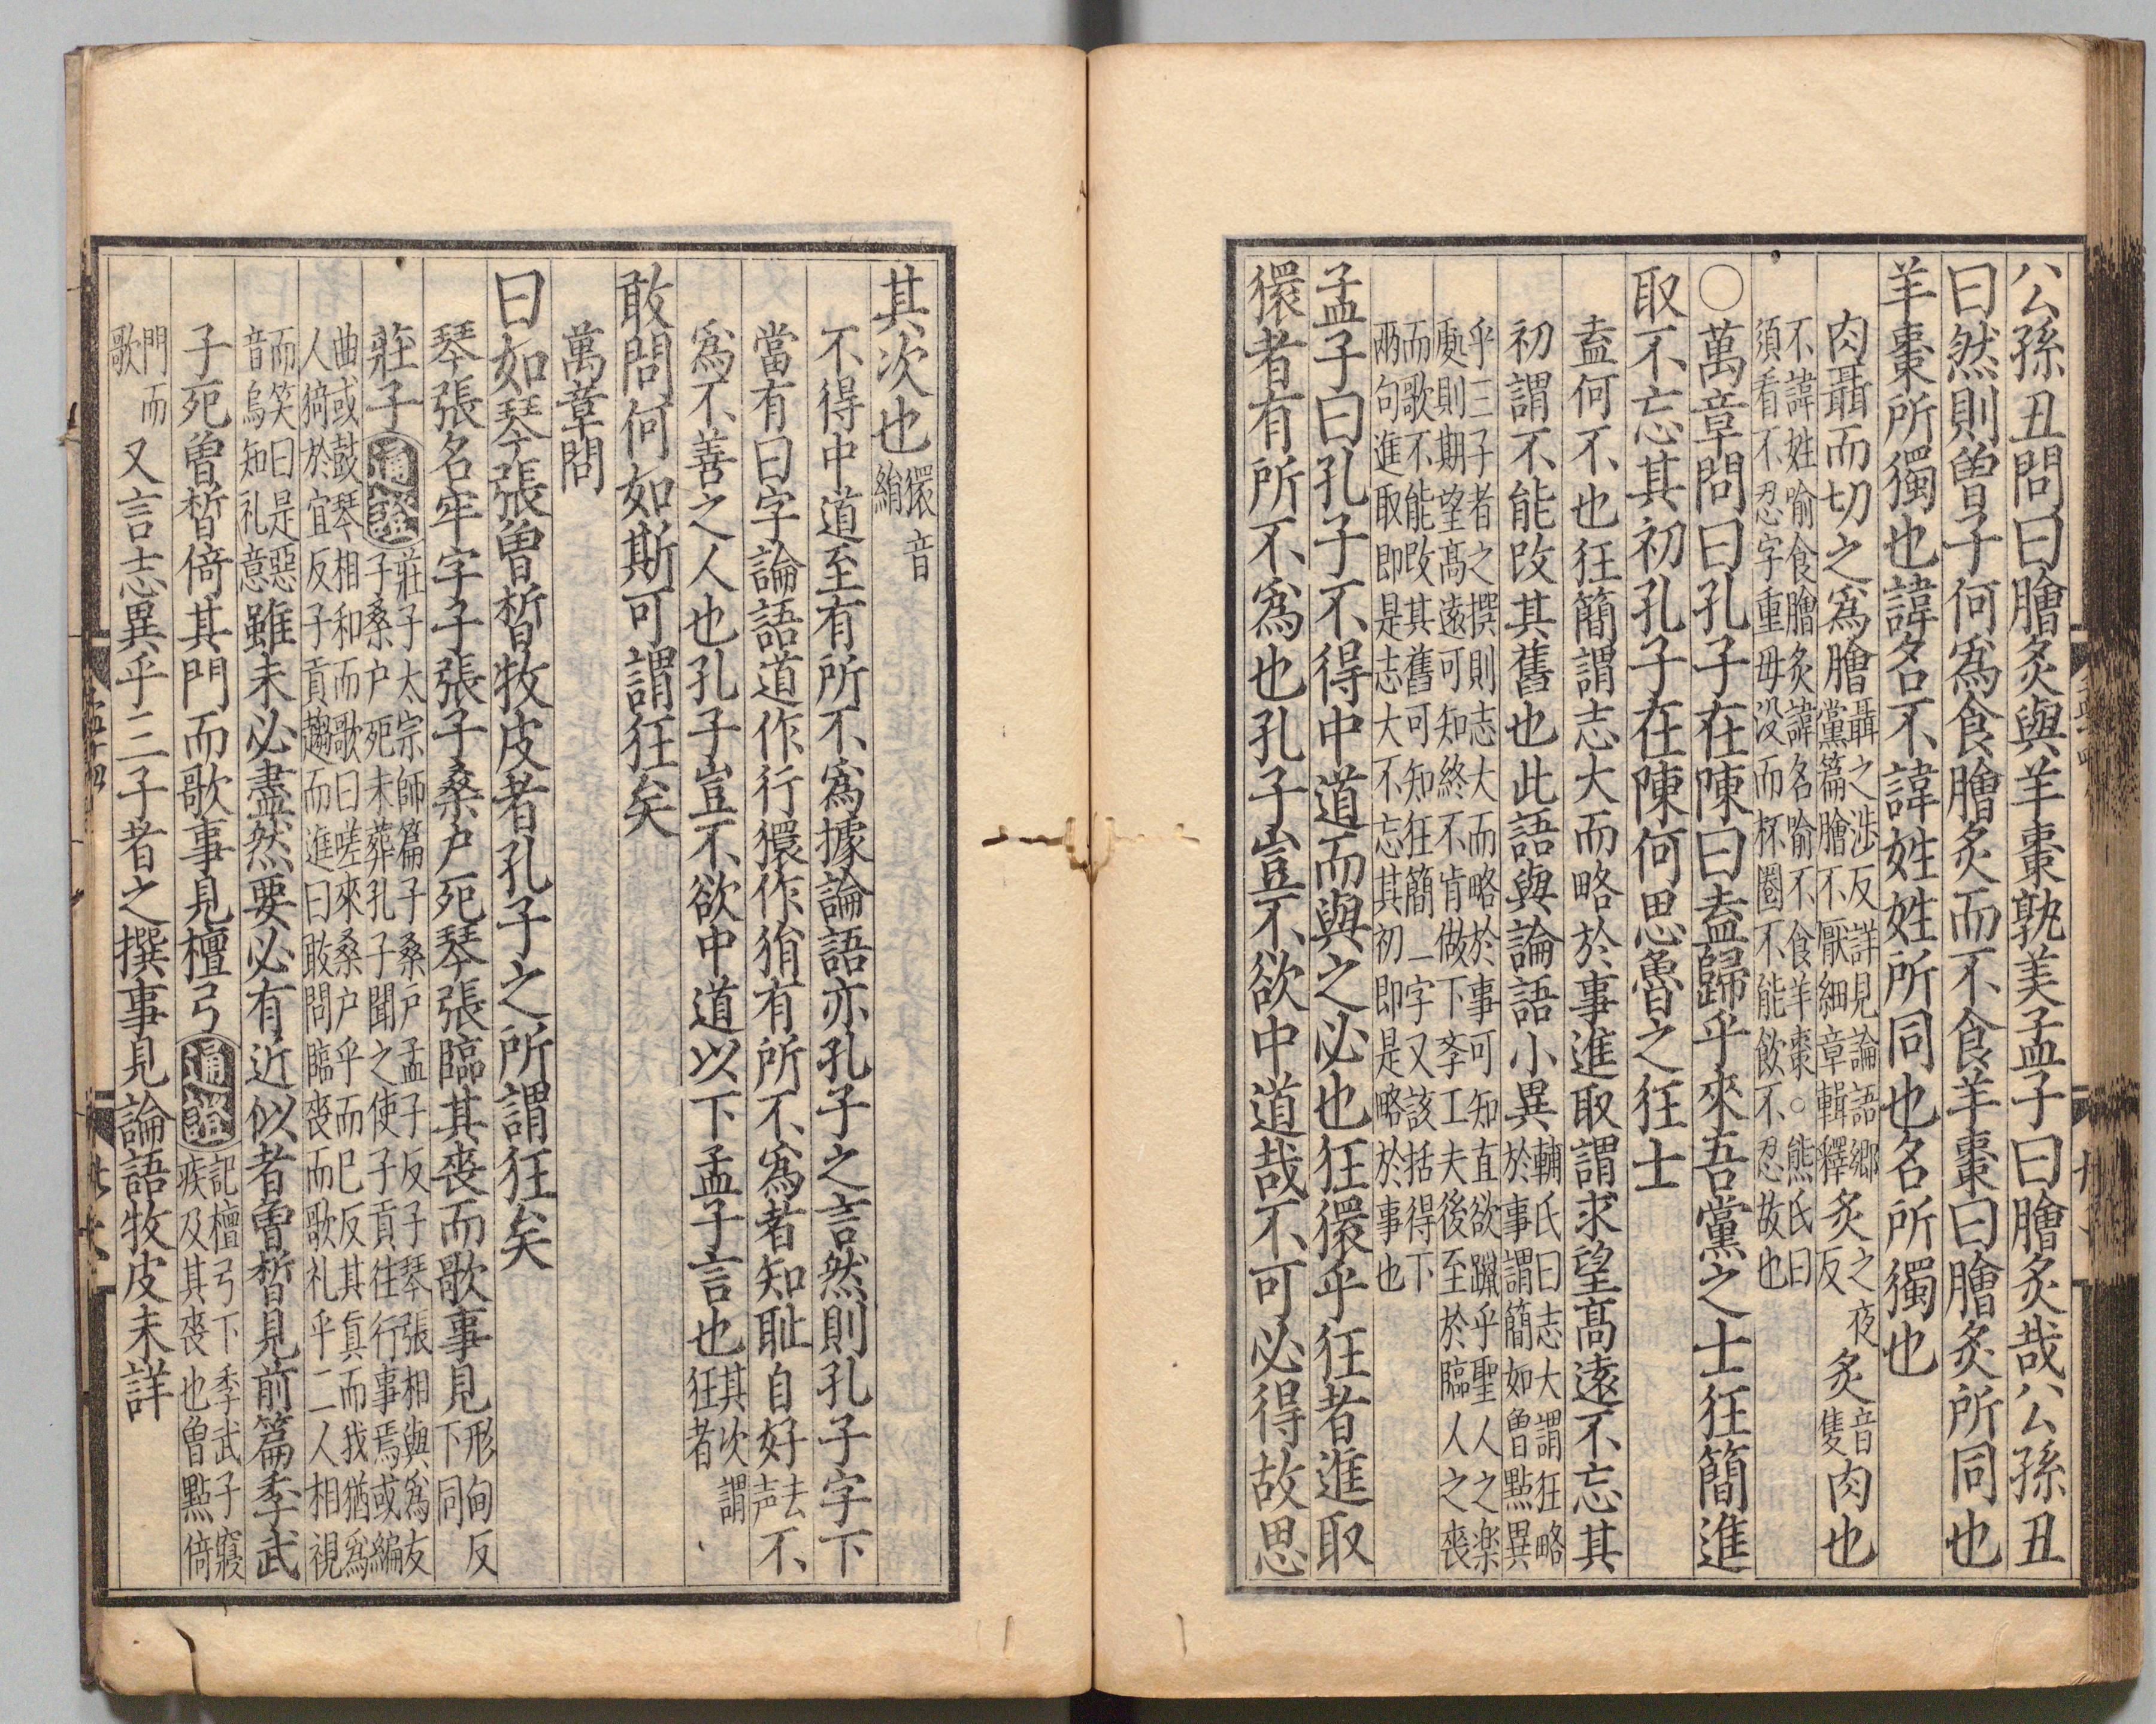 公孫丑問曰膾炙與羊棗孰美孟子曰膾炙哉公孫丑
曰然則曽子何爲食膾炙而不食羊棗曰膾炙所同也
羊棗所獨也諱名不諱姓姓所同也名所獨也
肉聶而切之爲膾
聶之渉反詳見論語郷
黨篇膾不厭細章輯釋
炙
之夜
反
炙
音
隻
肉也
不諱姓喻食膾炙諱名喻不食羊棗○熊氏曰
須看不忍字重毋没而杯圏不能飲不忍故也
○萬章問曰孔子在陳曰盍歸乎來吾黨之士狂簡進
取不忘其初孔子在陳何思魯之狂士
盍何不也狂簡謂志大而略於事進取謂求望髙遠不忘其
初謂不能改其舊也此語與論語小異
輔氏曰志大謂狂略
於事謂簡如曽點異
乎三子者之撰則志大而略於事可知直欲躐乎聖人之楽
處則期望髙遠可知終不肯做下孝工夫後至於臨人之丧
而歌不能改其舊可知狂簡一字又該括得下
兩句進取即是志大不忘其初即是略於事也
孟子曰孔子不得中道而與之必也狂獧乎狂者進取
獧者有所不爲也孔子豈不欲中道哉不可必得故思
其次也
獧音
絹
不得中道至有所不爲據論語亦孔子之言然則孔子字下
當有曰字論語道作行獧作狷有所不爲者知耻自好
去
声
不
爲不善之人也孔子豈不欲中道以下孟子言也
其次謂
狂者
敢問何如斯可謂狂矣
萬章問
曰如琴張曽晳牧皮者孔子之所謂狂矣
琴張名牢字子張子桑户死琴張臨其丧而歌事見
形甸反
下同
莊子
通證
莊子太宗師篇子桑户孟子反子琴張相與爲友
子桑户死未葬孔子聞之使子貢徃行事焉或編
曲或鼓琴相和而歌曰嗟來桑户乎而已反其真而我猶爲
人猗於宜反子貢趨而進曰敢問臨丧而歌礼乎二人相視
而笑曰是惡
音烏知礼意
雖未必盡然要必有近似者曽晳見前篇季武
子死曽晳倚其門而歌事見檀弓
通證
記檀弓下季武子寢
疾及其丧也曽點倚
門而
歌
又言志異乎三子者之撰事見論語牧皮未詳